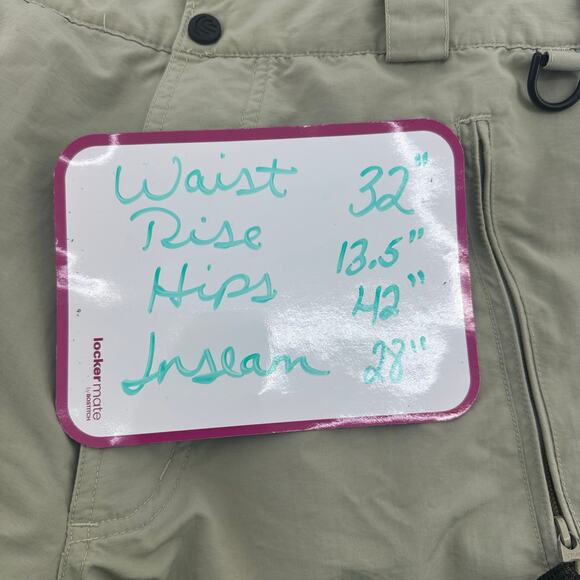 Waist 32"
Rise 13.5"
Hips 42"
Inseam 28"
lockermate
by BOSTITCH